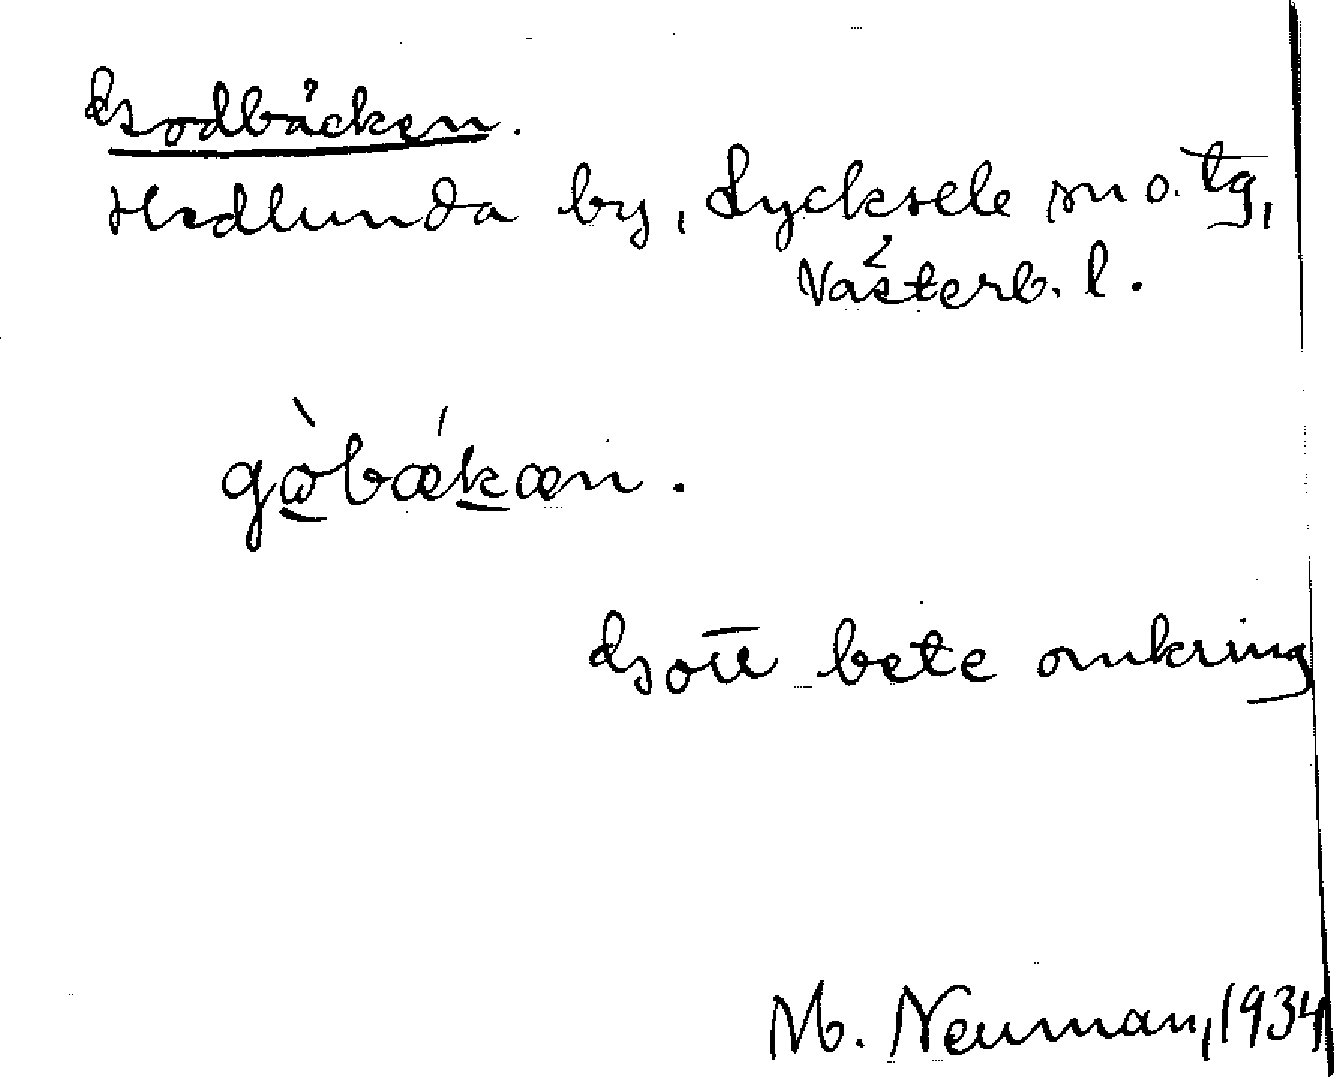 Godbäcken.
Hedlunda by, Lycksele sn o. tg,
Västerb. l.
gὼbǽkæn.
Gott bete omkring
M. Neuman, 1934